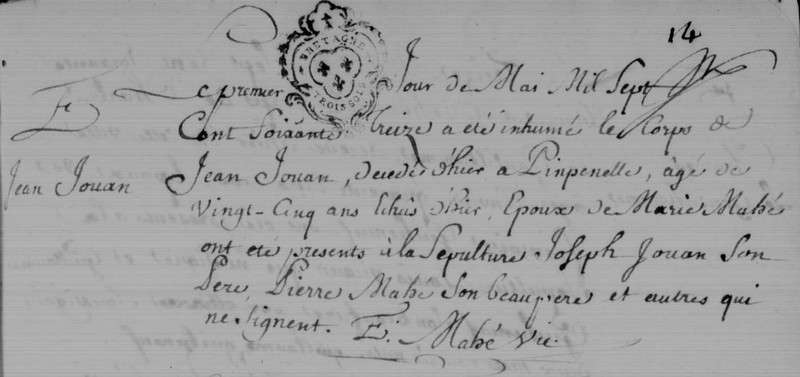 14
BRETAGNE
TROIS SOLS
Le premier Jour de Mai Mil Sept
Cent Soixante treize a eté inhumé le Corps de
Jean Jouan
Jean Jouan, decedé d'hier a Pinpenelle, âgé de
Vingt-Cinq ans Echus d'hier, Epoux de Marie Mahé
ont eté presents à la Sepulture Joseph Jouan Son
Pere, Pierre Mahé Son beaupere et autres qui
ne signent. F: Mahé Vic.